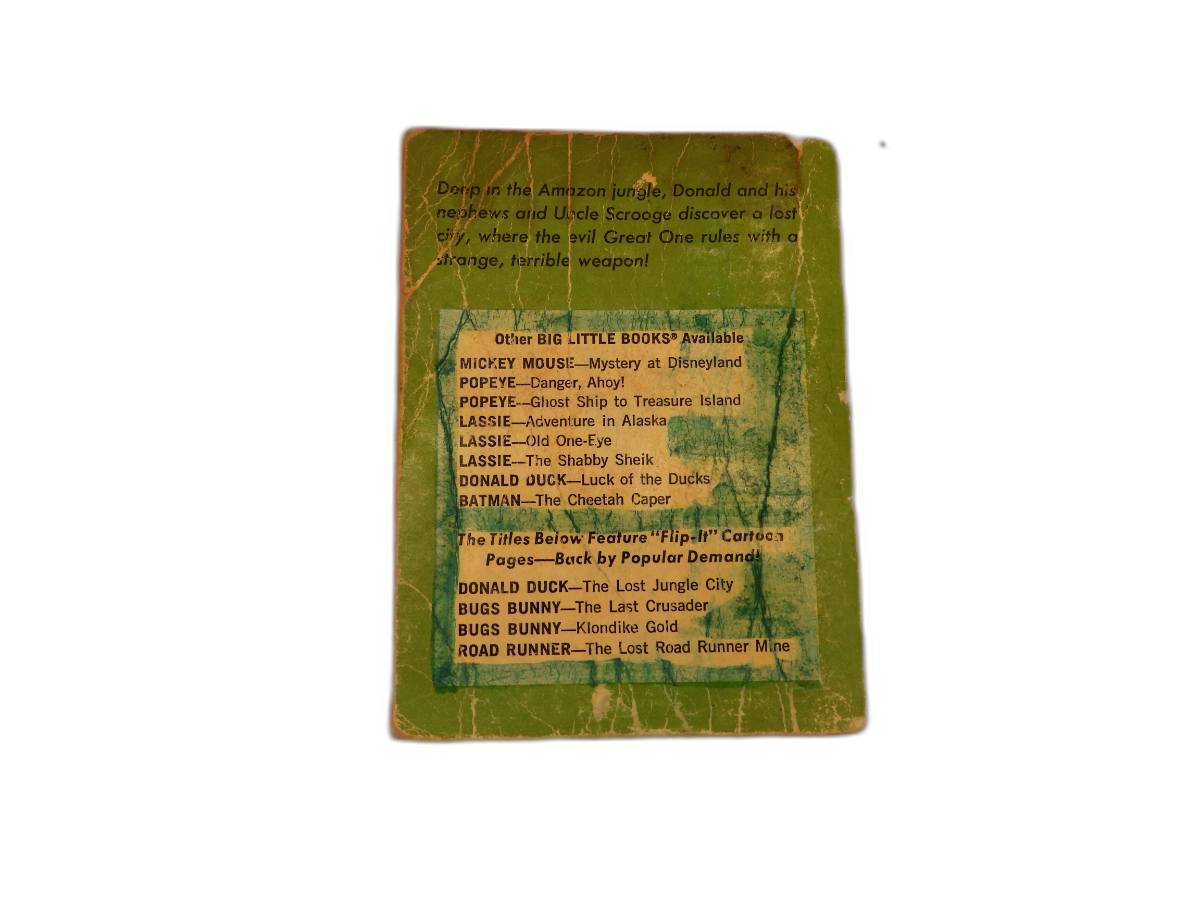 Deep in the Amazon jungle, Donald and his
nephews and Uncle Scrooge discover a lost
city, where the evil Great One rules with a
strange, terrible weapon!
Other BIG LITTLE BOOKS® Available
MICKEY MOUSE—Mystery at Disneyland
POPEYE—Danger, Ahoy!
POPEYE—Ghost Ship to Treasure Island
LASSIE—Adventure in Alaska
LASSIE—Old One-Eye
LASSIE—The Shabby Sheik
DONALD DUCK—Luck of the Ducks
BATMAN—The Cheetah Caper
The Titles Below Feature "Flip-It" Cartoon
Pages—Back by Popular Demand!
DONALD DUCK—The Lost Jungle City
BUGS BUNNY—The Last Crusader
BUGS BUNNY—Klondike Gold
ROAD RUNNER—The Lost Road Runner Mine